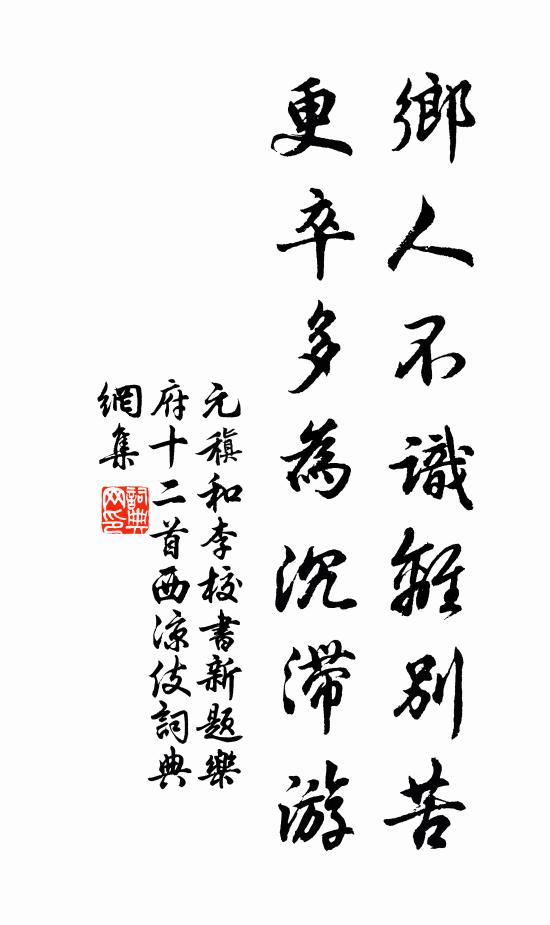 鄉人不識離別苦
更卒多為沉滯游
元稹和李校書新題樂
府十二首西涼伎詞典
網集
詞典網印